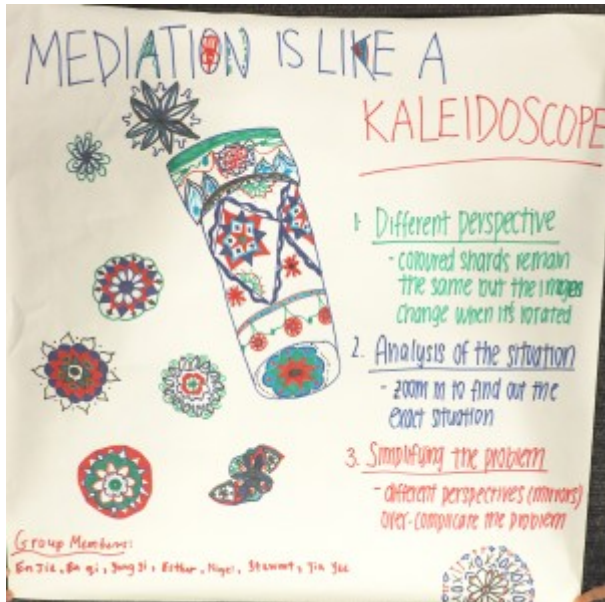 MEDIATION IS LIKE A
KALEIDOSCOPE
1. Different perspective
- coloured shards remain
the same but the images
change when it's rotated
2. Analysis of the situation
- zoom in to find out the
exact situation
3. Simplifying the problem
- different perspectives (mirrors)
over-complicate the problem
Group Members:
En Jia, En qi, Esther, Nigel, Jia